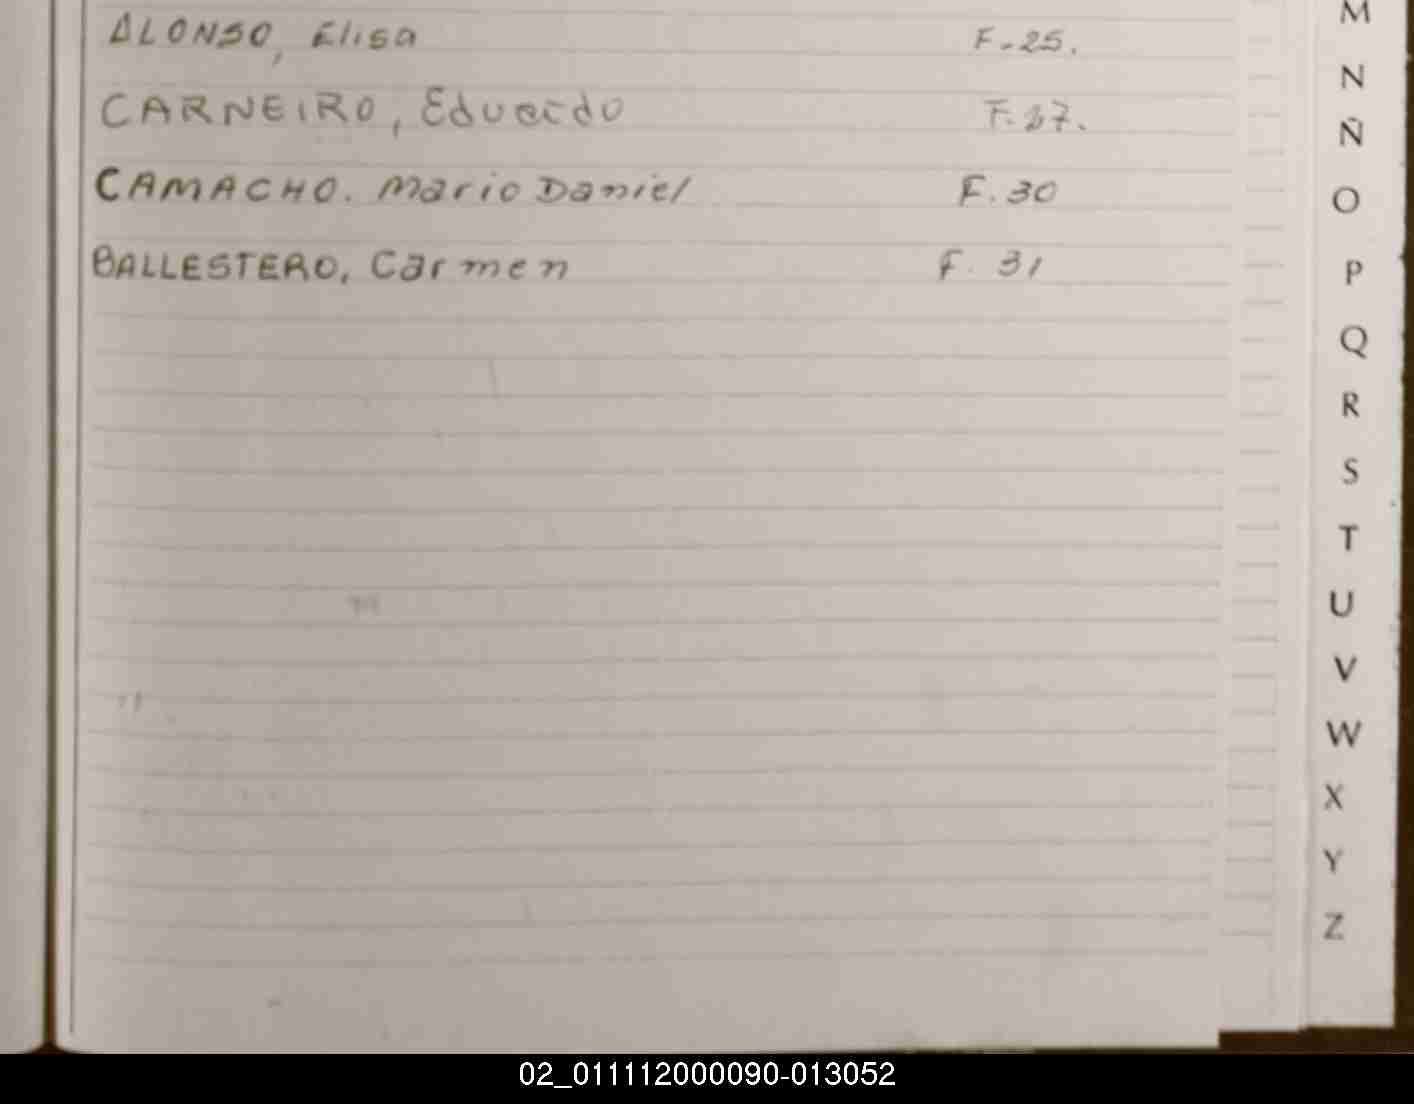 ALONSO, Elisa F-25.
CARNEIRO, Eduardo F.27.
CAMACHO. Mario Daniel F.30
BALLESTERO, Carmen F. 31
M
N
Ñ
O
P
Q
R
S
T
U
V
W
X
Y
Z
02_011112000090-013052